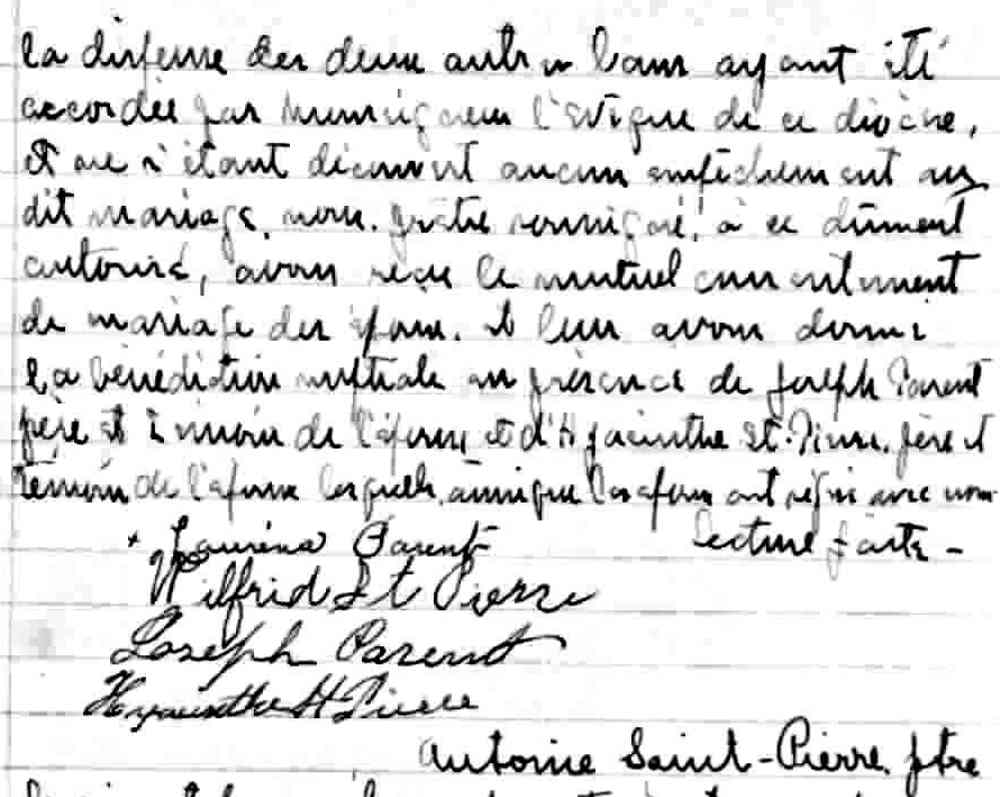 la dispense des deux autres bans ayant été
accordée par Monseigneur l'Evêque de ce diocèse,
et ne s'étant découvert aucun empêchement au
dit mariage, nous, prêtre soussigné, à ce dûment
autorisé, avons reçu le mutuel consentement
de mariage des époux, et leur avons donné
la bénédiction nuptiale en présence de Joseph Parent
père et témoin de l'épouse et d'Hyacinthe St-Pierre, père et
témoin de l'époux lesquels, ainsi que les époux ont signé avec nous
Lecture faite -
Laurena Parent
Wilfrid St Pierre
Joseph Parent
Hyacinthe St Pierre
Antonie Saint-Pierre, ptre